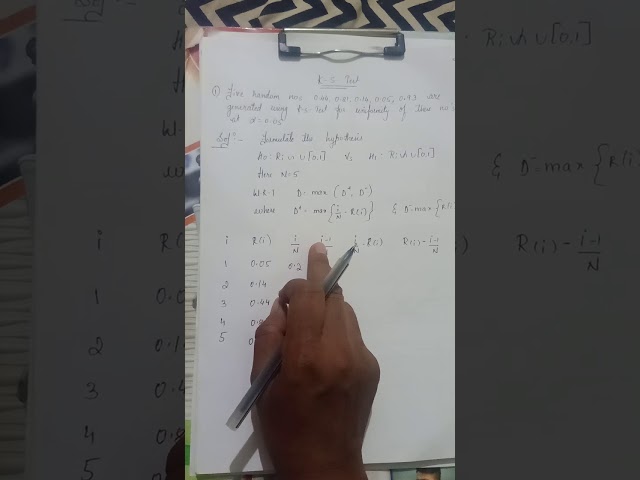 K-S Test
① Five random nos 0.44, 0.81, 0.14, 0.05, 0.93 are
generated using K-S Test for uniformity of these no's
at α = 0.05
Sol:-
the hypothesis
H0: Ri ~ U[0,1] Vs H1: Ri ~ U[0,1]
Here N=5
W.K.T D = max (D+, D-)
where D+ = max { i/N - R(i) } & D- = max { R(i)
i R(i) i/N i-1/N i/N - R(i) R(i) - i-1/N
1 0.05 0.2
2 0.14
3 0.44
4 0.
5 0.